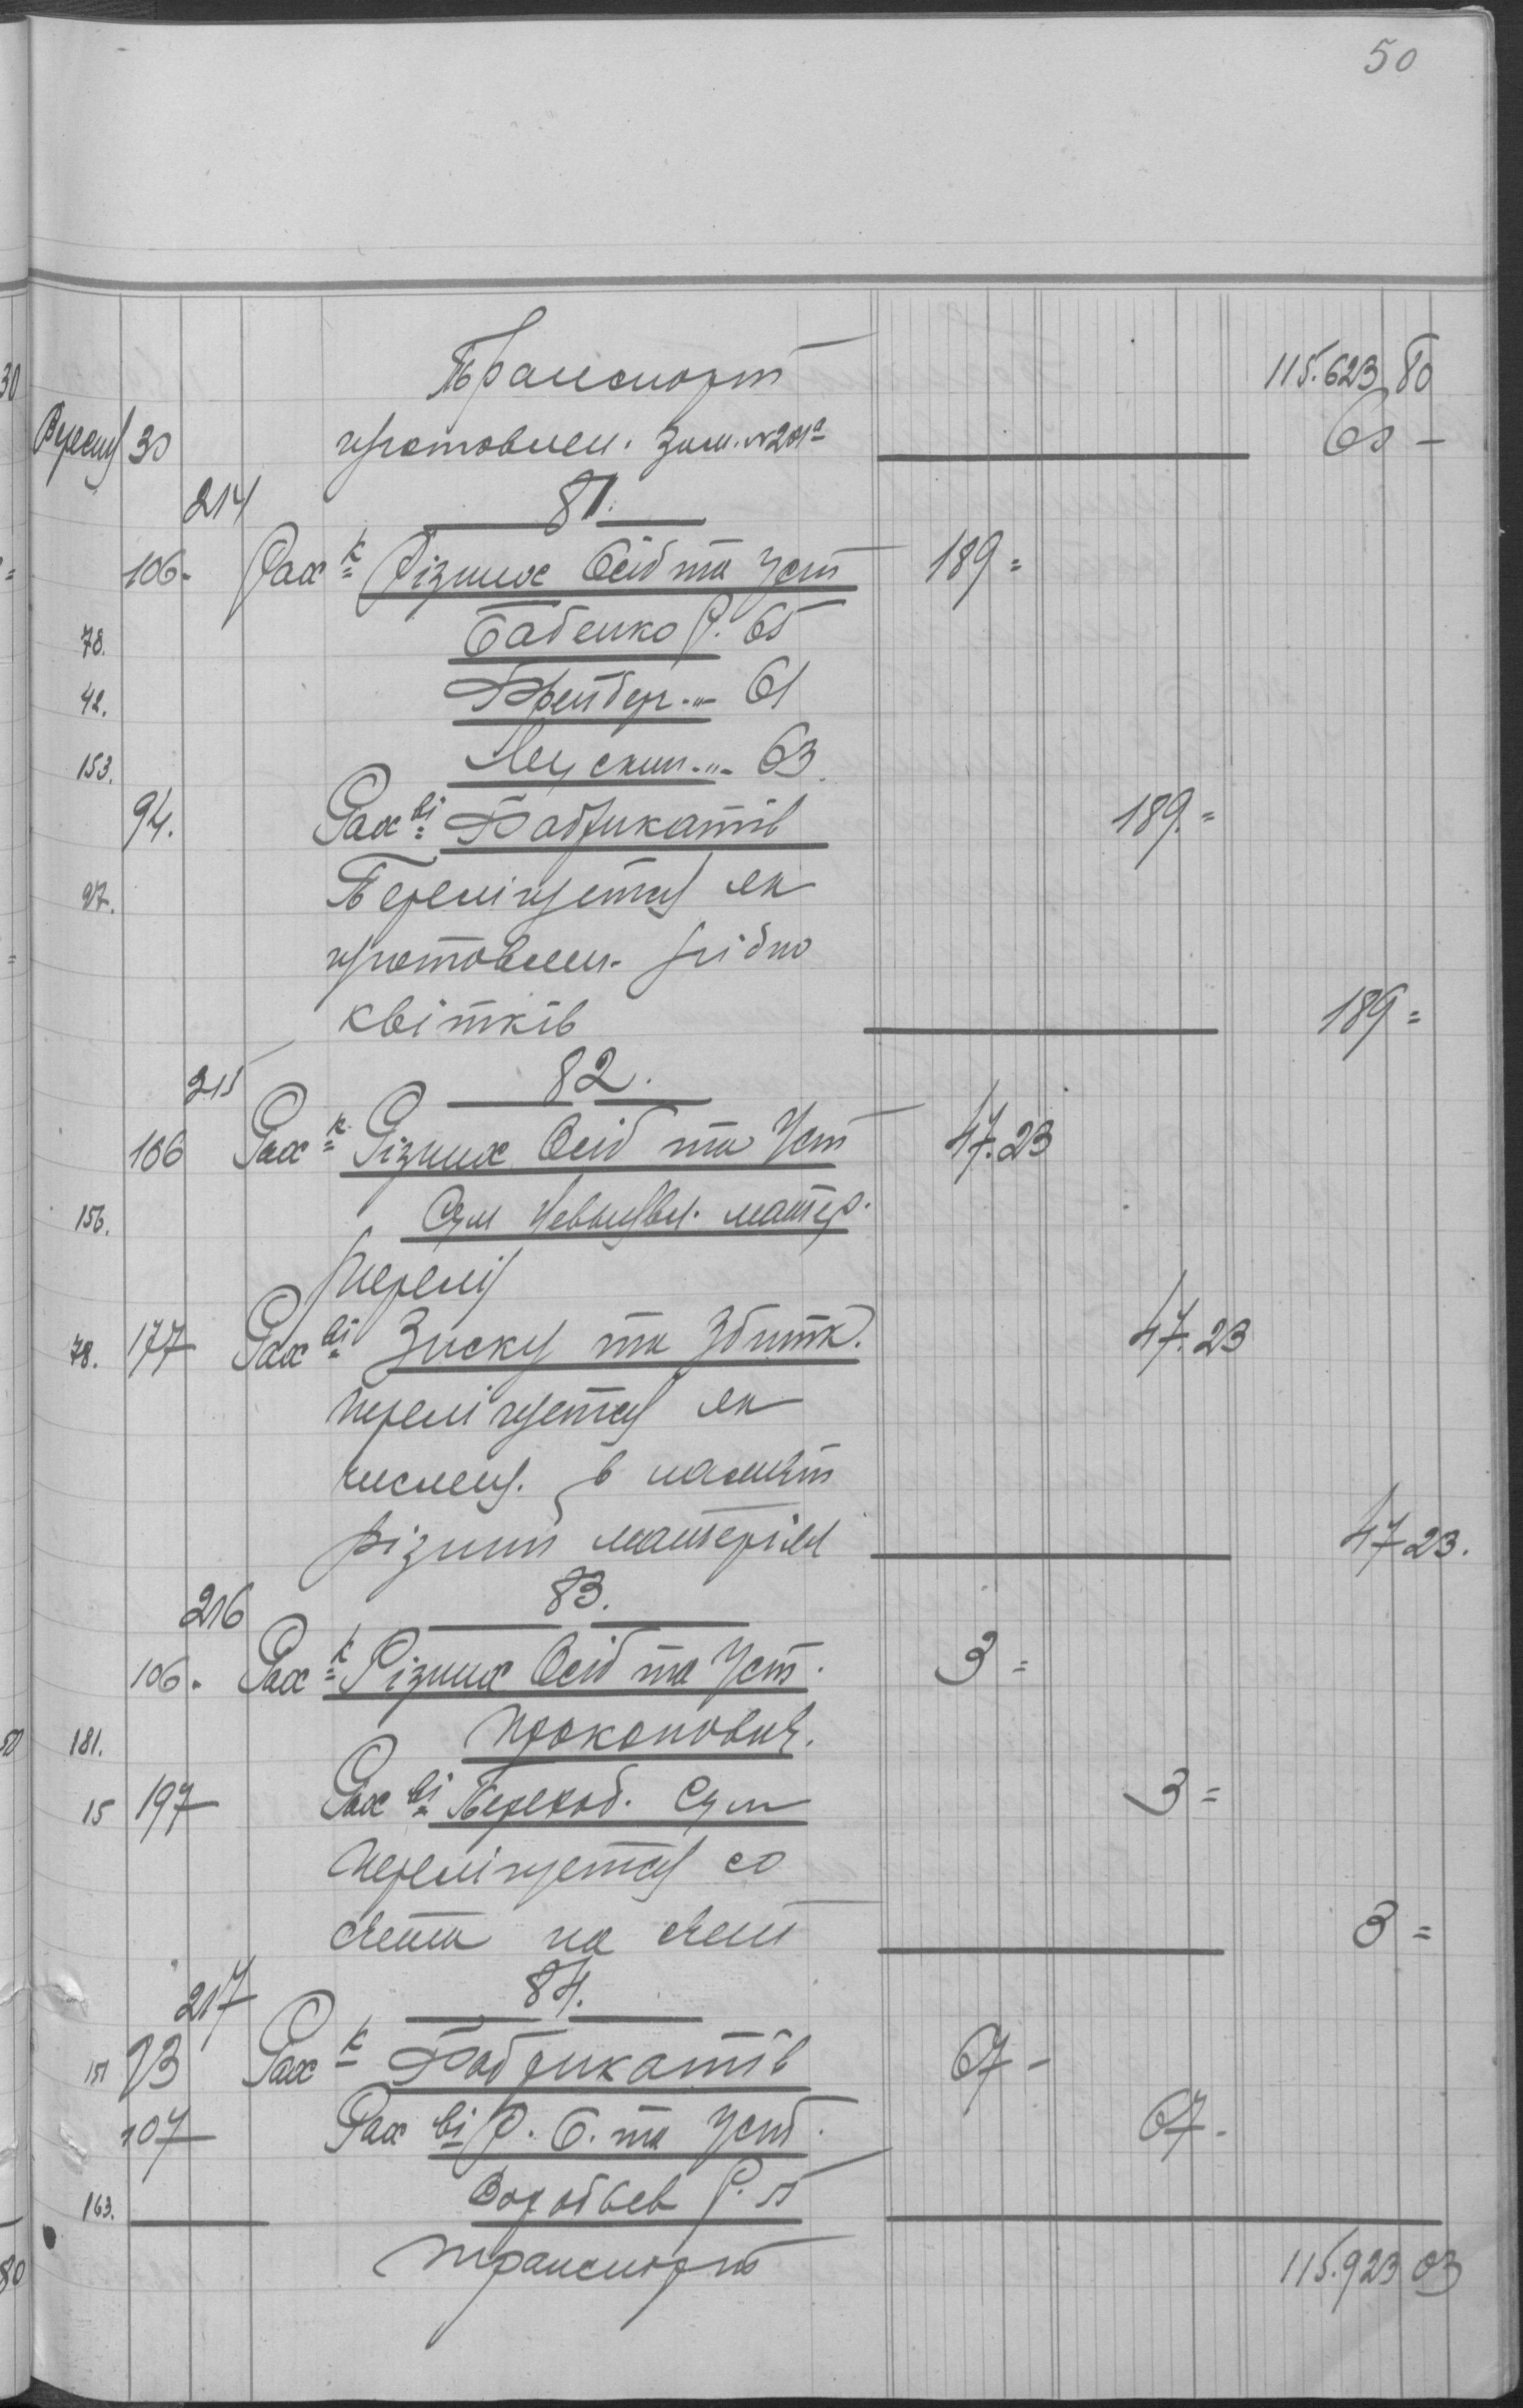 50
Транспорт 115.623 80
Вересня 30 зам. № 201а 60 -
214 81.
106. Рах к Різних Осіб та Уст 189 =
78. Бабенко Р. 65
42. Фрейдер. -"- 61
153. -"- 63.
94. Рах ві Фабрикатів 189. =
97. Перелічується як
згідно
квітків 189 =
215 82.
106 Рах к Різних Осіб та Уст 47.23
156. Сум матер.
78. 177 Рах ві Зиску та Збитк. 47.23
перелічується як
числен. в
різний матеріял 47 23.
216 83.
106. Рах к Різних Осіб та Уст. 3 =
181. Прокопович.
15 197 Рах ві Переход. Сум 3 =
перелічується со
счета на счет 3 =
217 84.
151 93 Рах к Фабрикатів 67 -
107 Рах ві Р. О. та Уст. 67 -
163. Воробьев Р.
Транспорт 115.923 03